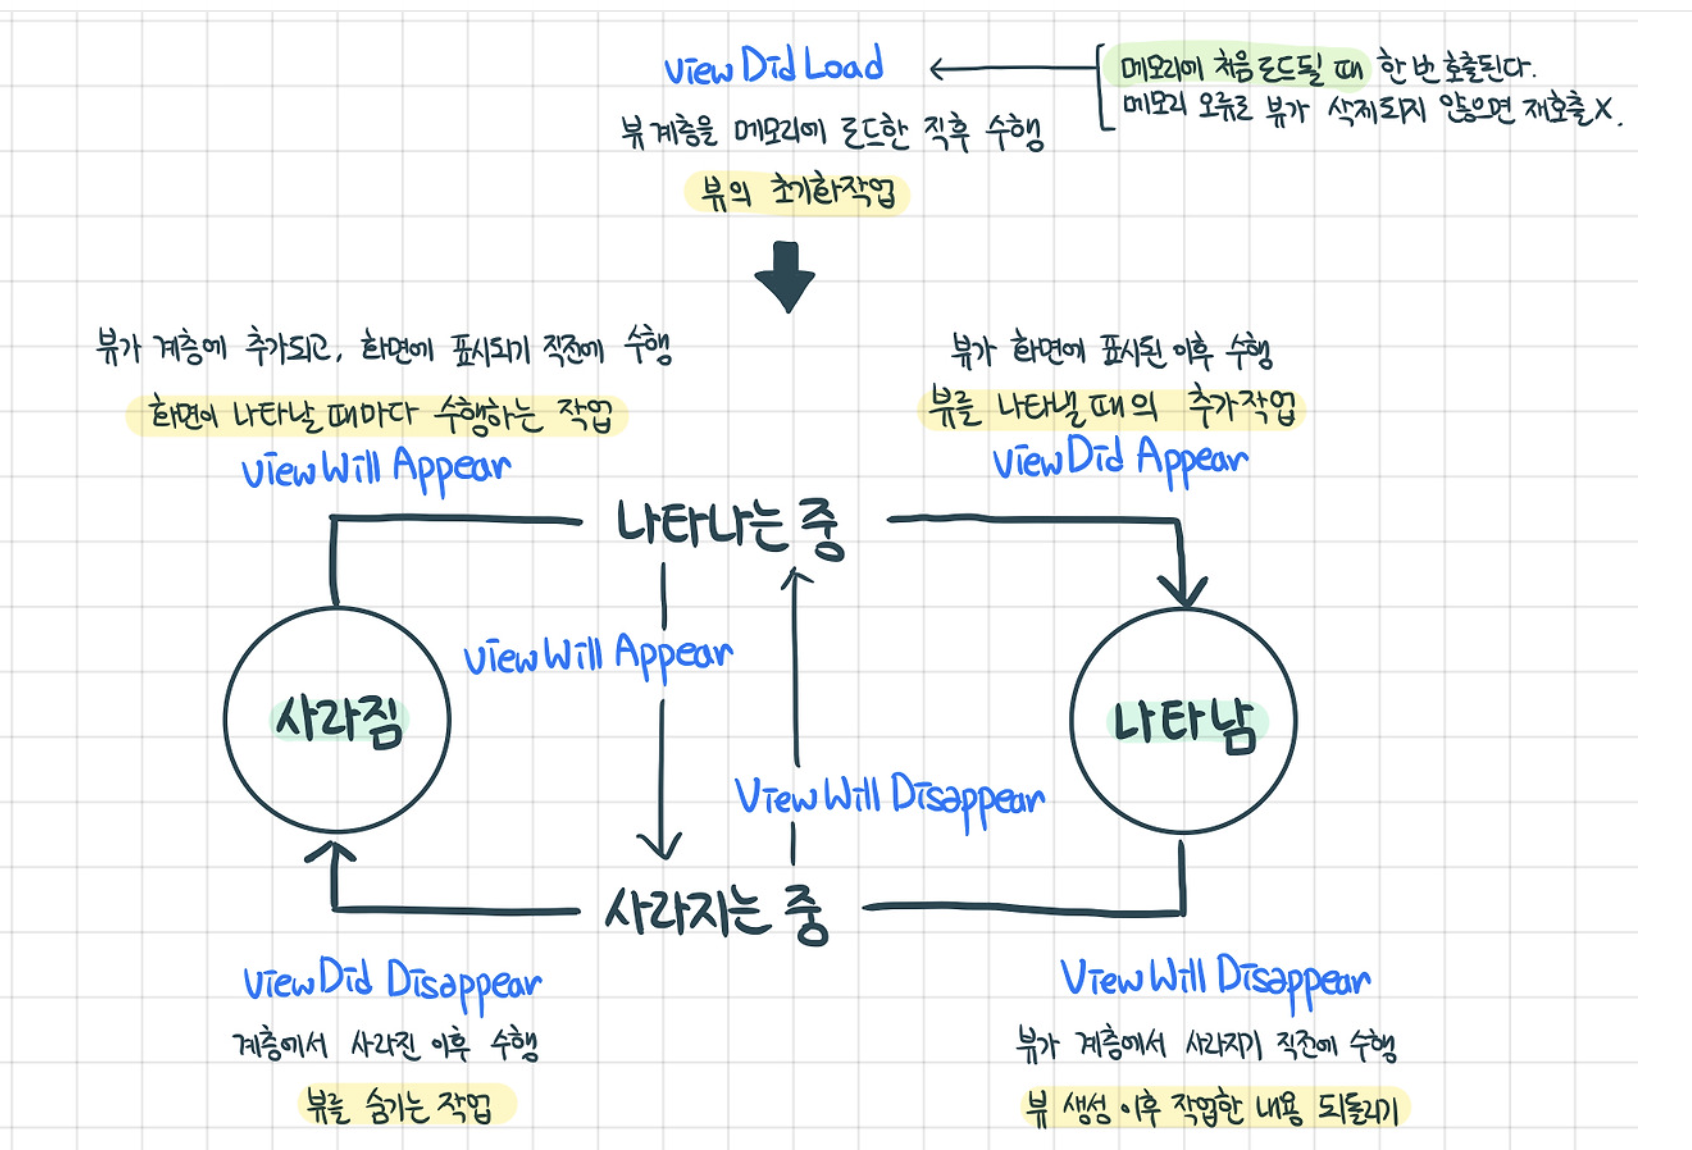 viewDidLoad
메모리에 처음 로드될 때 한 번 호출된다.
메모리 오류로 뷰가 삭제되지 않으면 재호출X.
뷰 계층을 메모리에 로드한 직후 수행
뷰의 초기화작업
뷰가 계층에 추가되고, 화면에 표시되기 직전에 수행
화면이 나타날 때마다 수행하는 작업
viewWill Appear
뷰가 화면에 표시된 이후 수행
뷰를 나타낼 때의 추가작업
viewDid Appear
나타나는 중
viewWill Appear
사라짐
나타남
ViewWill Disappear
사라지는 중
viewDid Disappear
계층에서 사라진 이후 수행
뷰를 숨기는 작업
ViewWill Disappear
뷰가 계층에서 사라지기 직전에 수행
뷰 생성 이후 작업한 내용 되돌리기